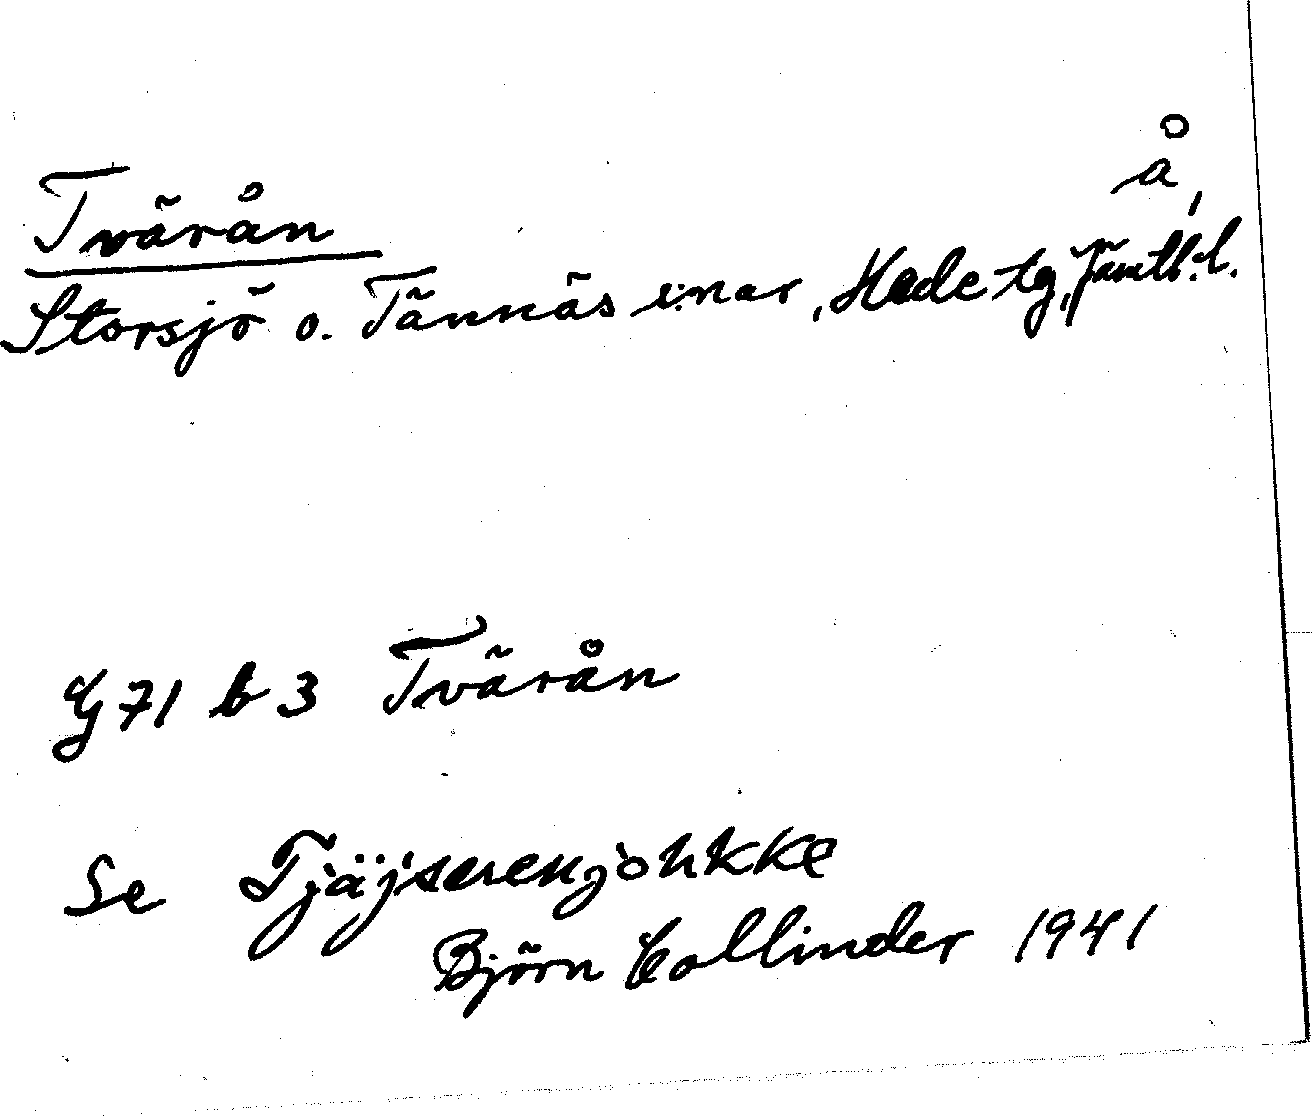 Tvärån
å,
Storsjö o. Tännäs s:nar, Hede tg, Jämtl. l.
G 71 b 3 Tvärån
Se Tjäjserenjohkke
Björn Collinder 1941